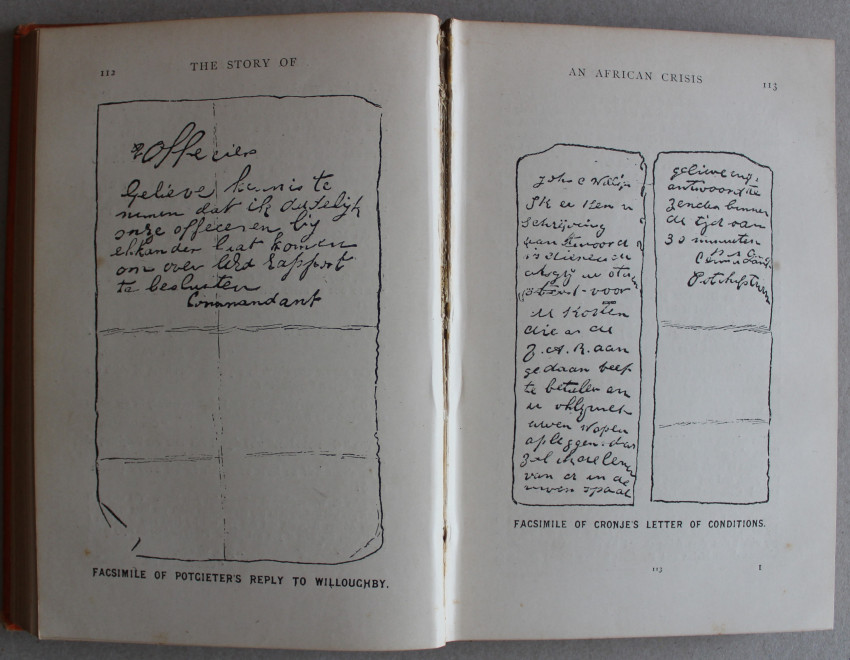 112
THE STORY OF
Officiers
Gelieve kennis te
nemen dat ik dadelijk
onze officeren bij
elkander laat komen
om over UEd Rapport
te besluiten
Commandant
FACSIMILE OF POTGIETER'S REPLY TO WILLOUGHBY.
AN AFRICAN CRISIS
113
John C Willi
Ik u
Schrijving
van
is
als gij u
voor
u Kosten
die as de
Z.A.R. aan
gedaan heef
te betalen en
u
uwen Wapen
afleggen. dan
zal ik
van er in de
uwen
gelieve my,
antwoord te
zenden binnen
de tijd van
30 minuten
Potchefstroom
FACSIMILE OF CRONJE'S LETTER OF CONDITIONS.
113
I